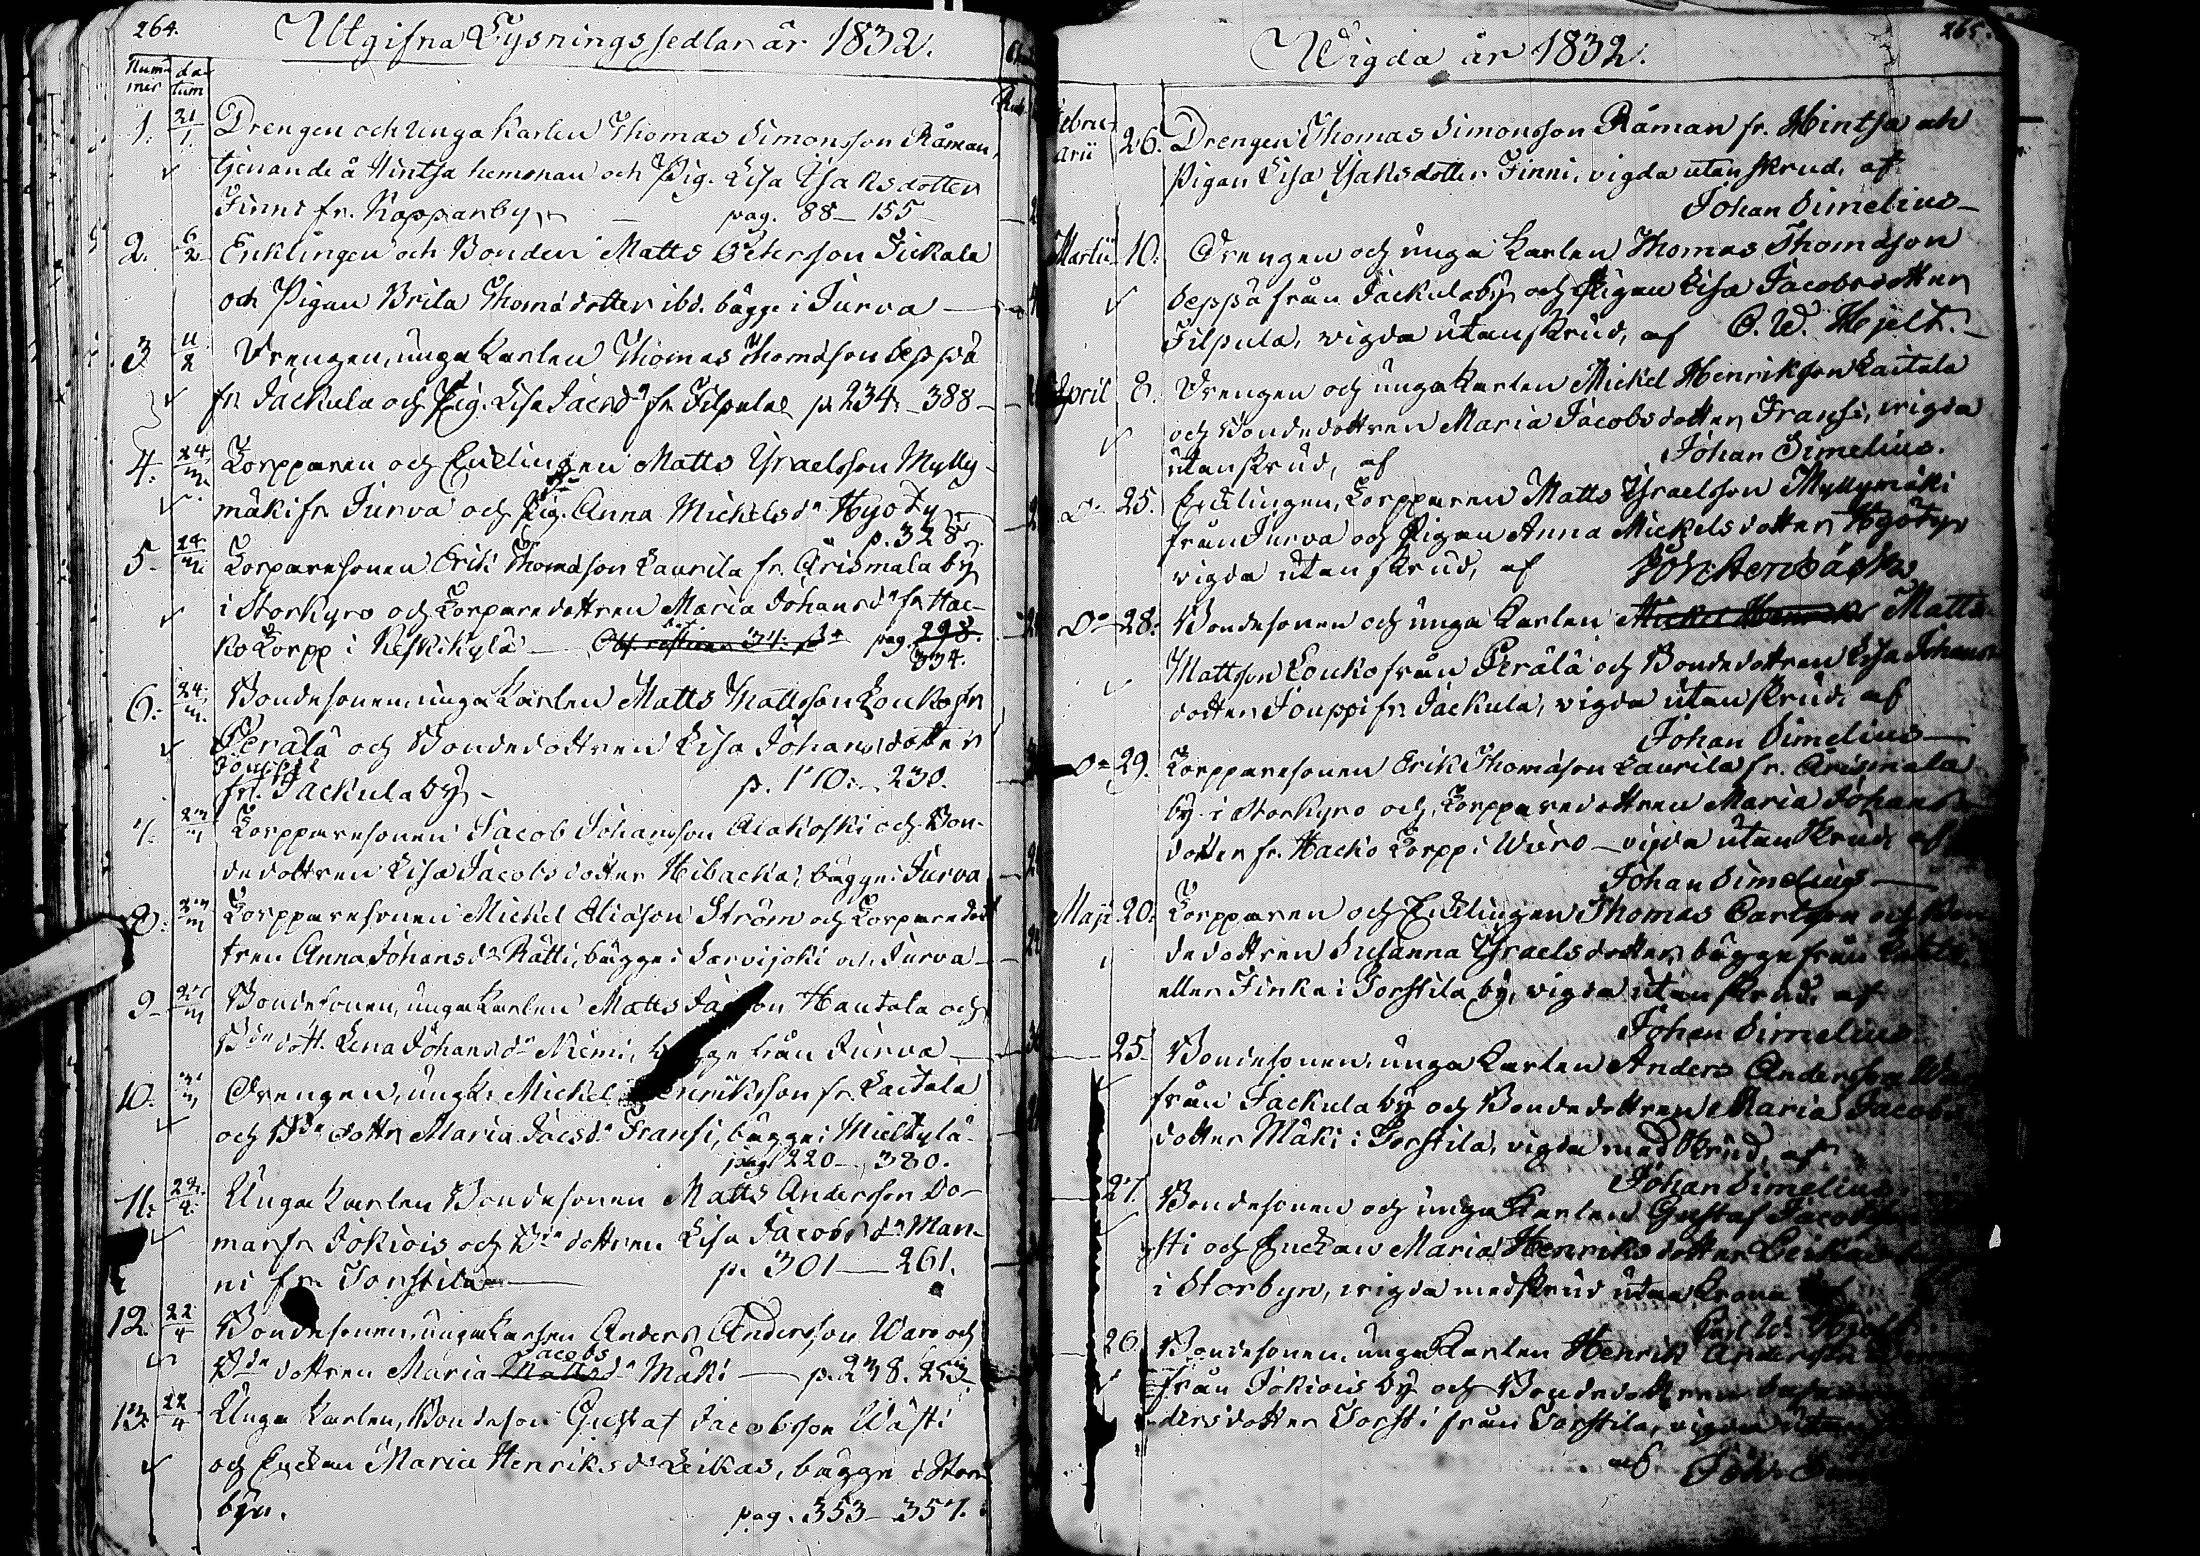 264.
Utgifna Lysningssedlar år 1832.
Num-
mer
da-
tum
1. 21/1. Drengen och Unga Karlen Thomas Simonsson Råman,
tjenande å Hintsa hemman och Pig. Lisa Isaksdotter
Finni fr. Kopparby pag. 88 - 155
2. 6/2 Enklingen och Bonden Matts Petersson Fickala
och Pigan Brita Thomasdotter ibd. bägge i Jurva
3 11/2 Drengen, unga Karlen Thomas Thomasson Seppä
fr. Jackula och Pig. Lisa Jacsdr fr. Filpula p. 234. - 388
4. 24/m. Torpparen och Enklingen Matts Israelsson Mylly-
mäki fr. Jurva och Pig. Anna Mickelsdr Hyöty
p. 328.
5 24/m. Torparesonen Erik Thomasson Laurila fr. Orismala by
i Storkyro och Torparedottren Maria Johansdr fr. Hac-
ko Torpp i Keskikylä pag. 298.
334.
6. 24/m. Bondesonen, unga Karlen Matts Mattsson Louko fr.
Perälä och Bondedottren Lisa Johansdotter
Jouppi
fr. Jackula by p. 170. - 230.
7. Torpparesonen Jacob Johansson Alakoski och Bon-
dedottren Lisa Jacobsdotter Hibacka, bägge i Jurva
8. Torpparesonen Mickel Eliasson Ström och Torparedot
tren Anna Johansdr Rätti, bägge i Sarvijoki och Jurva
9 Bondesonen, unga Karlen Matts Hautala och
Bde dott. Lena Johansdr Niemi, bägge från Jurva
10. Drengen, ungk. Mickel Henriksson fr. Laitala
och Bde dottr Maria Jacsdr Fransi, bägge i Mieltylä
pag. 220 - 380.
11. 22/4. Unga Karlen Bondesonen Matts Andersson Do-
mar fr. Jokiois och Bde dottren Lisa Jacobsdr Man-
ni fr. Torstila p. 301 - 261.
12. 22/4 Bondesonen, unga Karlen Anders Andersson Waro och
Jacobs
Bde dottren Maria Mattsdr Mäki p. 238. 253
13. 22/4 Unga Karlen, Bondeson Gustaf Jacobsson Wästi
och Enckan Maria Henriksdr Leikas, bägge i Stor-
byn. pag. 353 - 357.
265.
Wigda år 1832.
Febru-
arii 26. Drengen Thomas Simonsson Råman fr. Hintsa och
Pigan Lisa Isaksdotter Finni, vigda utan skrud, af
Johan Simelius
Martii 10. Drengen och unga Karlen Thomas Thomasson
Seppä från Jackula by och Pigan Lisa Jacobsdotter
Filpula, vigda utan skrud, af C. W. Hjelt.
April 8. Drengen och unga Karlen Mickel Henriksson Laitala
och Bondedottren Maria Jacobsdotter Fransi, vigda
utan skrud, af Johan Simelius.
Do 25. Enklingen, Torpparen Matts Israelsson Myllymäki
från Jurva och Pigan Anna Mickelsdotter Hyöty
vigda utan skrud, af
Do 28. Bondesonen och unga Karlen Mickel Henriks Matts
Mattsson Louko från Perälä och Bondedottren Lisa Johans
dotter Jouppi fr. Jackula, vigda utan skrud, af
Johan Simelius
Do 29. Torpparesonen Erik Thomasson Laurila fr. Orismala
by i Storkyro och Torpparedottren Maria Johans
dotter fr. Hacko Torpp i Wöro - vigda utan skrud, af
Johan Simelius
Maji 20. Torpparen och Enklingen Thomas Carlsson och Bon
dedottren Susanna Israelsdotter, bägge från
eller Finka i Torstila by, vigda utan skrud, af
Johan Simelius
25 Bondesonen, unga Karlen Anders Andersson
från Jackula by och Bondedottren Maria Jacobs
dotter Mäki i Torstila, vigda med skrud, af
Johan Simelius
27. Bondesonen och unga Karlen Gustaf
sti och Enckan Maria Henriksdotter Leikas
i Storbyn, vigda med skrud utan Krona af
Carl W. Hjelt
26. Bondesonen, unga Karlen Henrik Andersson
från Jokiois by och Bondedottren
dersdotter Torsti från Torstila, vigda utan
af Joh.